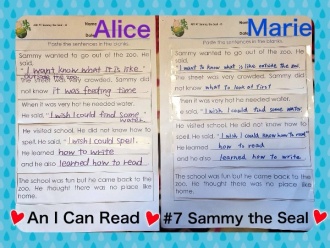 Alice
Marie
Paste the sentences in the blanks.
Sammy wanted to go out of the zoo. He
said,
"I want know what it is like
The street was very crowded. Sammy did
not know it was feeding time
When it was very hot he needed water.
He said, "I wish I could find some
water.
He visited school. He did not know how to
spell. He said, "I wish I could spell.
He learned how to write
and he also learned how to read
The school was fun but he came back to the
zoo. He thought there was no place like
home.
Paste the sentences in the blanks.
Sammy wanted to go out of the zoo. He
said,
"I want to know what is like outside the zoo
The street was very crowded. Sammy did
not know what to look at first
When it was very hot he needed water.
He said, "I wish I could find some water
He visited school. He did not know how to
spell. He said, "I wish I could know how to read"
He learned how to read
and he also learned how to write.
The school was fun but he came back to the
zoo. He thought there was no place like
home.
An I Can Read #7 Sammy the Seal